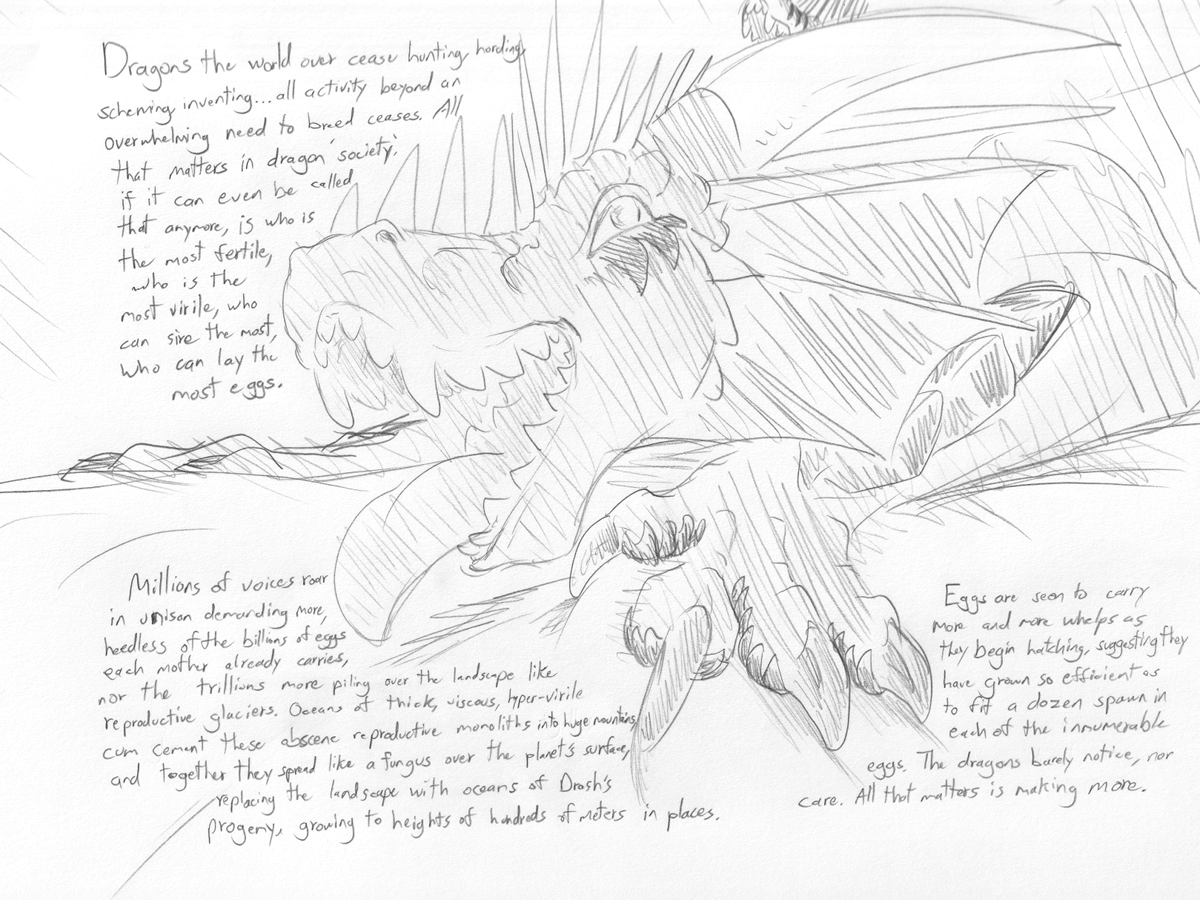 Dragons the world over cease hunting, hording,
scheming, inventing... all activity beyond an
overwhelming need to breed ceases. All
that matters in dragon 'society',
if it can even be called
that anymore, is who is
the most fertile,
who is the
most virile, who
can sire the most,
who can lay the
most eggs.
Millions of voices roar
in unison demanding more,
heedless of the billions of eggs
each mother already carries,
nor the trillions more piling over the landscape like
reproductive glaciers. Oceans of thick, viscous, hyper-virile
cum cement these obscene reproductive monoliths into huge mountains,
and together they spread like a fungus over the planet's surface,
replacing the landscape with oceans of Drosh's
progeny, growing to heights of hundreds of meters in places.
Eggs are seen to carry
more and more whelps as
they begin hatching, suggesting they
have grown so efficient as
to fit a dozen spawn in
each of the innumerable
eggs. The dragons barely notice, nor
care. All that matters is making more.